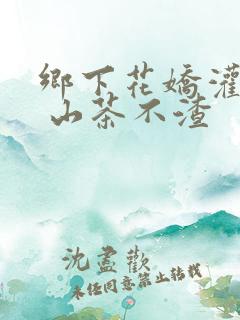 鄉下花嬌灌
山茶不渣
沈盡歡
未經同意禁止轉載